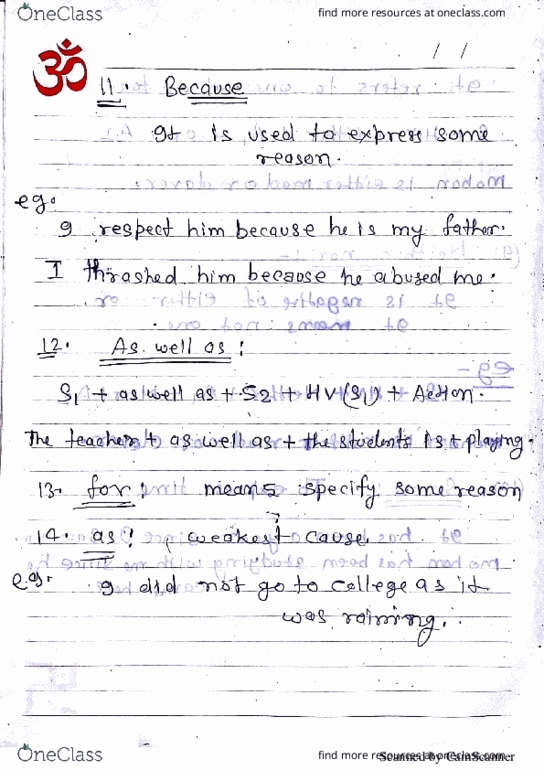 OneClass
find more resources at oneclass.com
ॐ
/ /
11. Because
It is used to express some
reason.
eg.
I respect him because he is my father.
I thrashed him because he abused me.
12. As well as :
S1 + as well as + S2 + HV (S1) + Action.
The teacher + as well as + the students is + playing.
13. for : means specify some reason
14. as : weakest cause.
eg. I did not go to college as it
was raining.
OneClass
find more resources at oneclass.com
Scanned by CamScanner